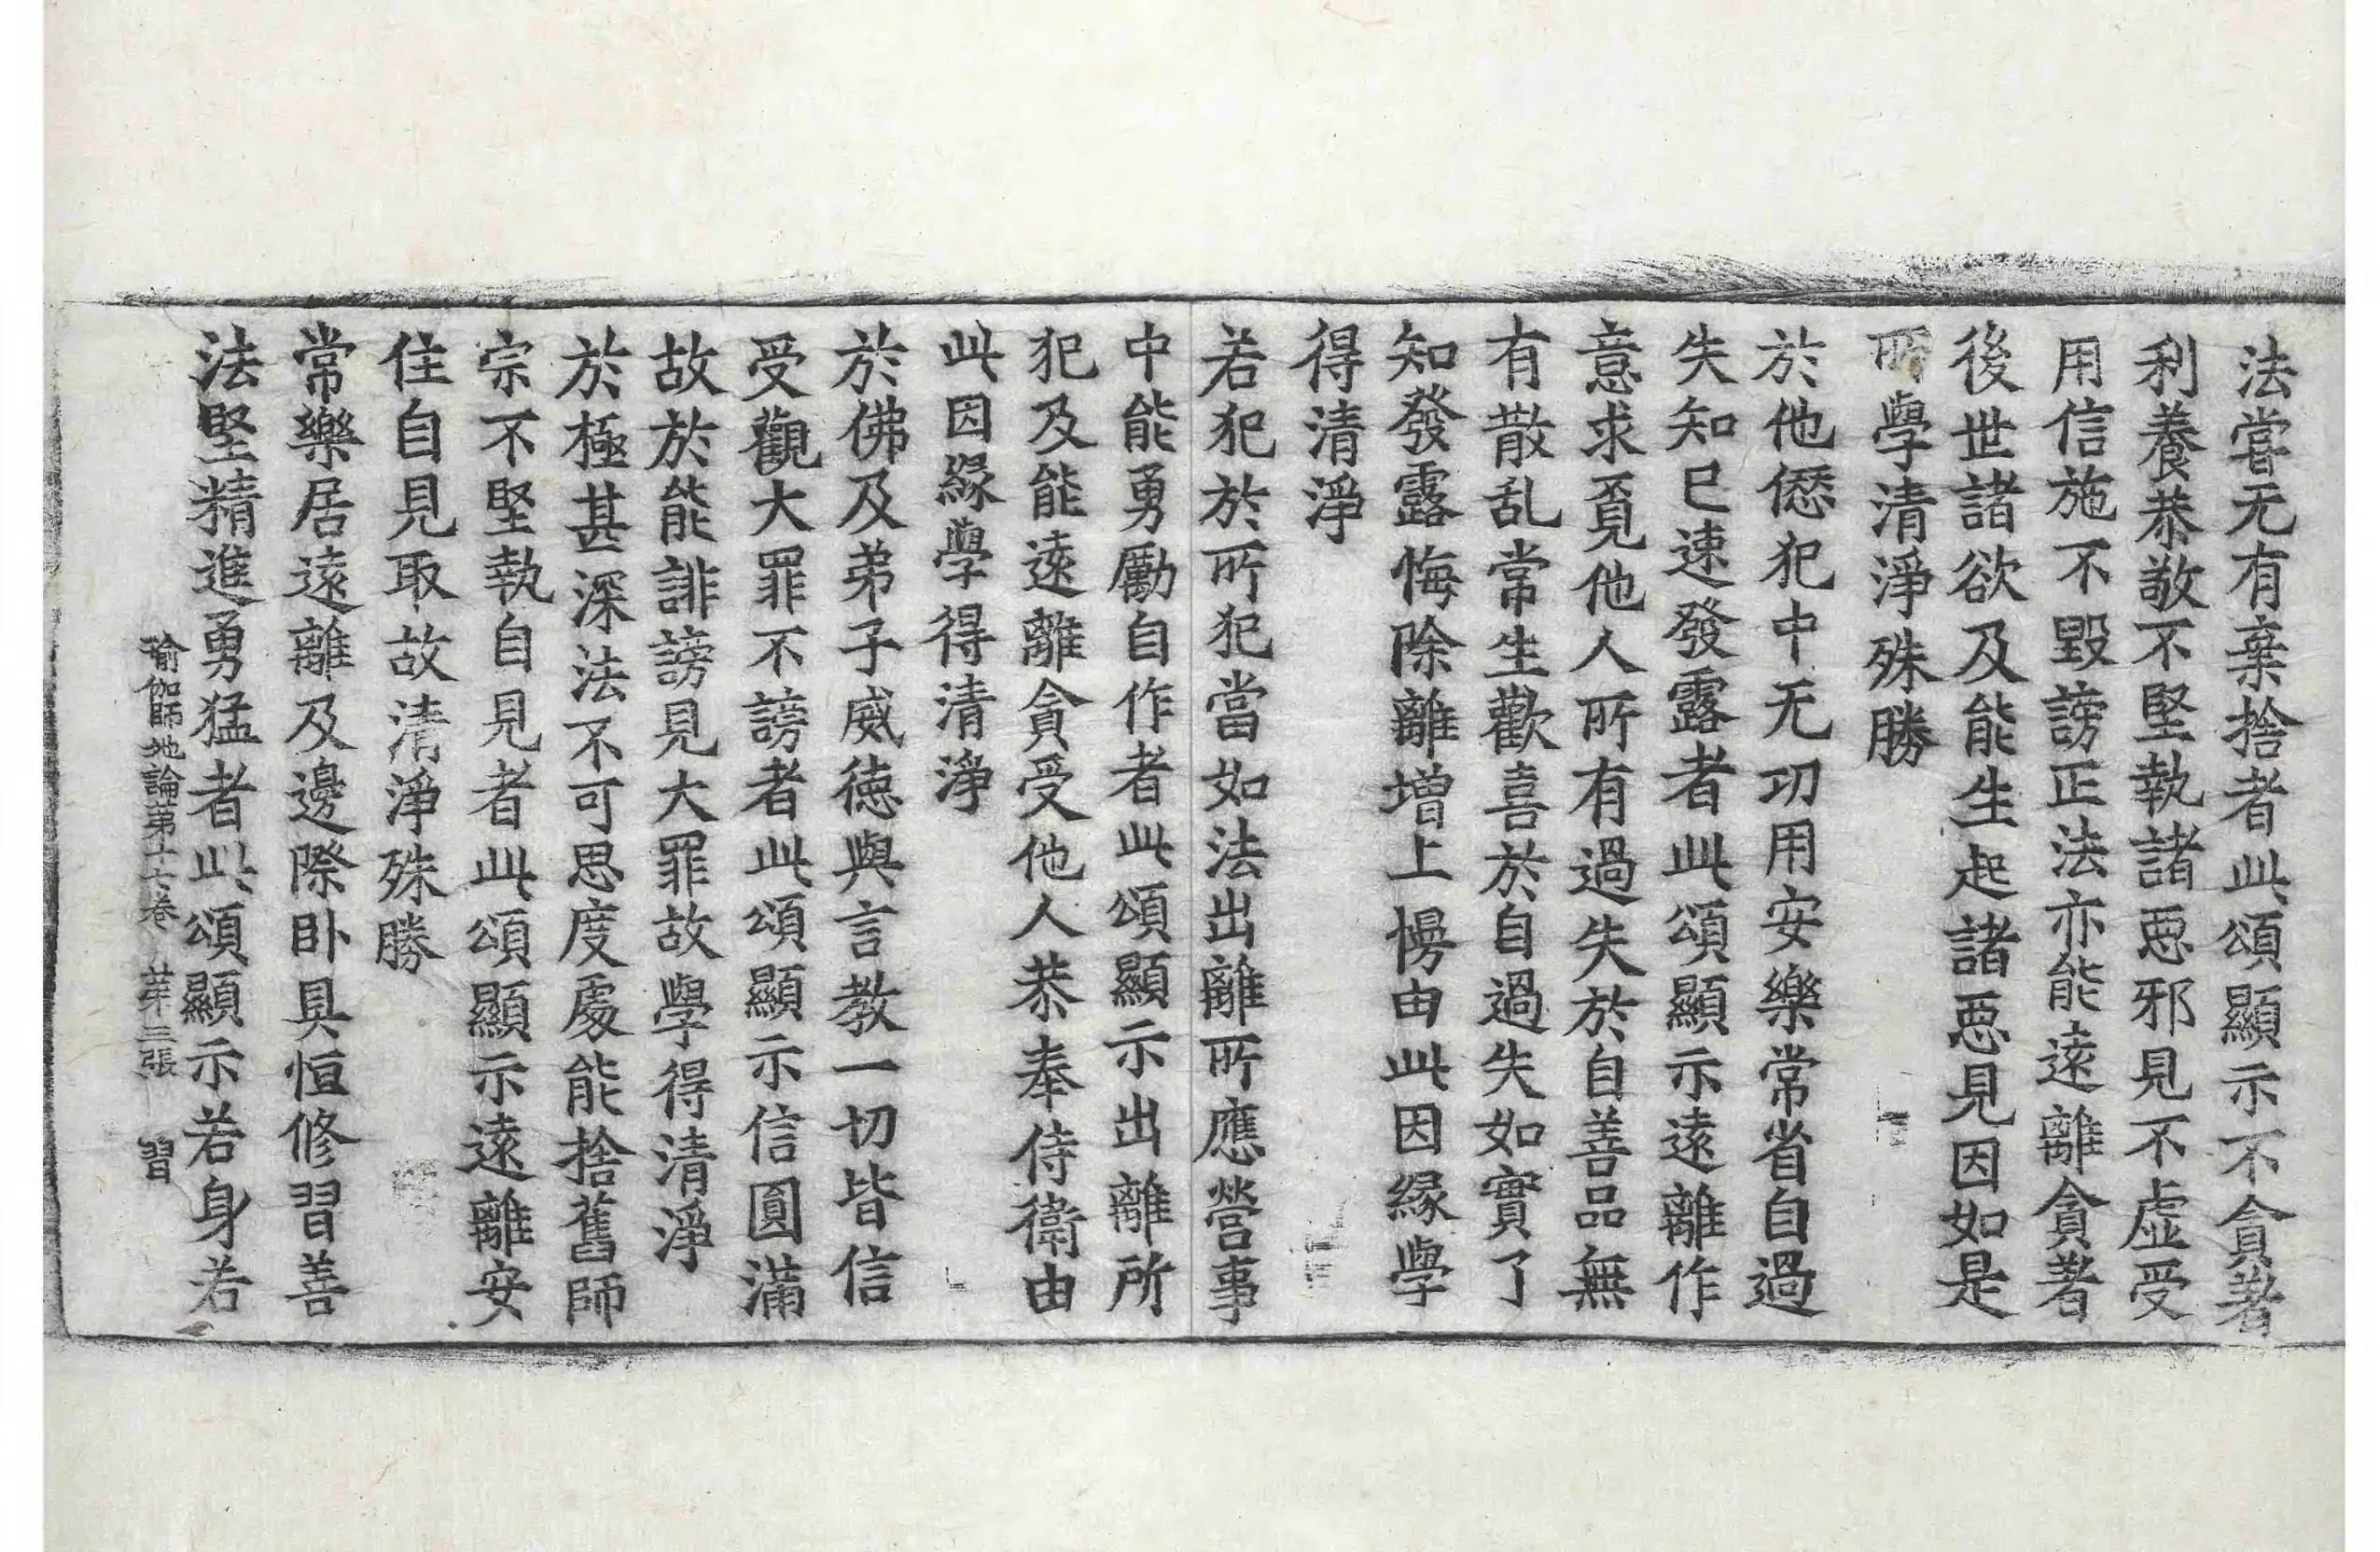 法甞无有棄捨者此頌顯示不貪著
利養恭敬不堅執諸惡邪見不虛受
用信施不毀謗正法亦能遠離貪著
後世諸欲及能生起諸惡見因如是
所學清淨殊勝
於他愆犯中无功用安樂常省自過
失知已速發露者此頌顯示遠離作
意求覓他人所有過失於自善品無
有散乱常生歡喜於自過失如實了
知發露悔除離增上慢由此因緣學
得清淨
若犯於所犯當如法出離所應營事
中能勇勵自作者此頌顯示出離所
犯及能遠離貪受他人恭奉侍衛由
此因緣學得清淨
於佛及弟子威德與言教一切皆信
受觀大罪不謗者此頌顯示信圓滿
故於能誹謗見大罪故學得清淨
於極甚深法不可思度處能捨舊師
宗不堅執自見者此頌顯示遠離安
住自見取故清淨殊勝
常樂居遠離及邊際卧具恒修習善
法堅精進勇猛者此頌顯示若身若
瑜伽師地論第十七卷 第三張 習